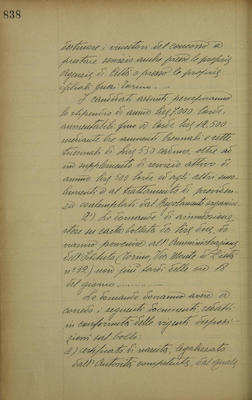 838
destinare i vincitori del concorso a
prestare servizio anche presso le proprie
Agenzie di Città o presso le proprie
filiali fuori Torino. —
I candidati assunti percepiranno
lo stipendio di annue lire 9.000 lorde,
aumentabili fino a lorde lire 12.500
mediante tre aumenti triennali e sette
biennali di lire 350 cadauno, oltre ad
un supplemento di servizio attivo di
annue lire 500 lorde ed agli altri
menti ed al trattamento di previden-
za contemplati dal Regolamento organico.
2°) Le domande di ammissione,
stese su carta bollata da lire due, do-
vranno pervenire all'Amministrazione
dell'Istituto (Torino, Via Monte di Pietà
n° 32) non più tardi delle ore 18
del giorno
Le domande dovranno avere a
corredo i seguenti documenti, redatti
in conformità delle vigenti disposi-
zioni sul bollo:
a) certificato di nascita, legalizzato
dall'Autorità competente, dal quale